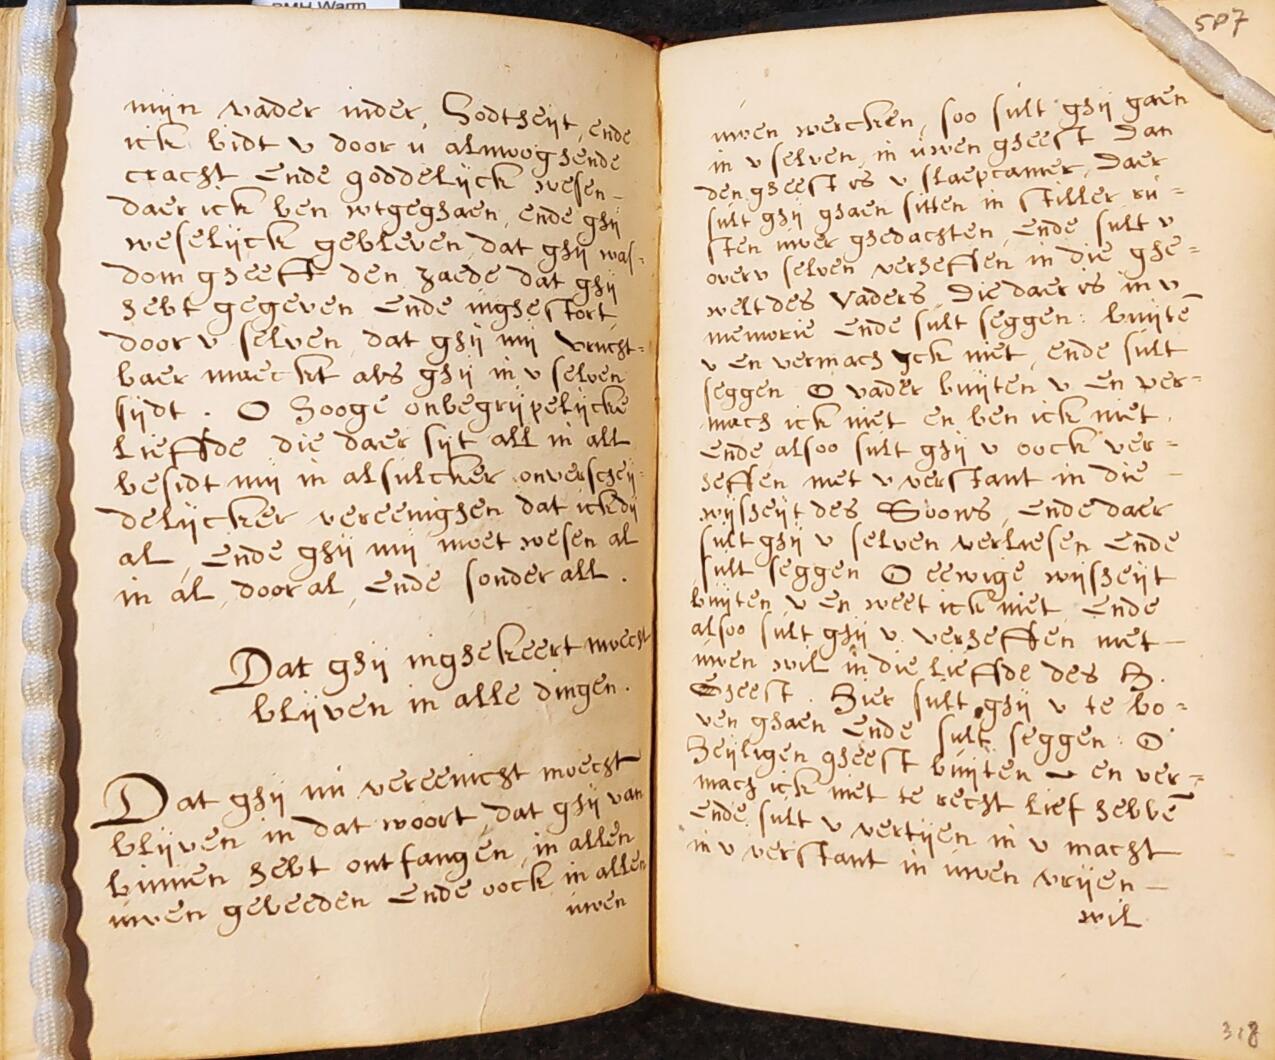 BMH Warm
mijn vader inder, Godtheijt, ende
ick bidt v door u almoghende
cracht Ende goddelijck wesen -
daer ick ben wtgeghaen, ende ghij
weselijck gebleven, dat ghij was-
dom gheeft den zaede dat ghij
hebt gegeven Ende inghestort,
door v selven, dat ghij mij vrucht=
baer maeckt als ghij in v selven
sijdt . O hooge onbegrijpelijcke
Lieffde die daer sijt all in all
besidt mij in alsulcker onverscheij=
delijcker vereenighen dat ick dij
al, Ende ghij mij moet wesen al
in al, door al, Ende sonder all .
Dat ghij inghekeert moecht
blijven in alle dingen .
Dat ghij nu vereenicht moecht
blijven in dat woort, dat ghij van
binnen hebt ontfangen, in allen
uwen gebeeden Ende oock in allen
uwen
587
uwen wercken, soo sult ghij gaen
in v selven, in uwen gheest Dan
den gheest is v slaepcamer, Daer
sult ghij ghaen sitten in stiller ru=
sten uwer ghedachten, Ende sult v
over v selven verheffen in die ghe=
welt des Vaders, Die daer is in v
memorie Ende sult seggen: buijtē
v en vermach yck niet, ende sult
seggen O vader buijten v En ver=
mach ick niet en ben ick niet,
Ende alsoo sult ghij v oock ver=
heffen met v verstant in die -
wijsheijt des Soons, Ende daer
sult ghij v selven verliesen Ende
sult seggen O eewige wijsheijt
buijten v en weet ick niet, Ende
alsoo sult ghij v verheffen met -
uwen wil in die Lieffde des H.
Gheest . Hier sult ghij v te bo=
ven ghaen Ende sult seggen: O
Heijligen gheest buijten v en ver=
mach ick niet te recht Lief hebbē
Ende sult v vertijen in v macht
in v verstant in uwen vrijen -
wil
318